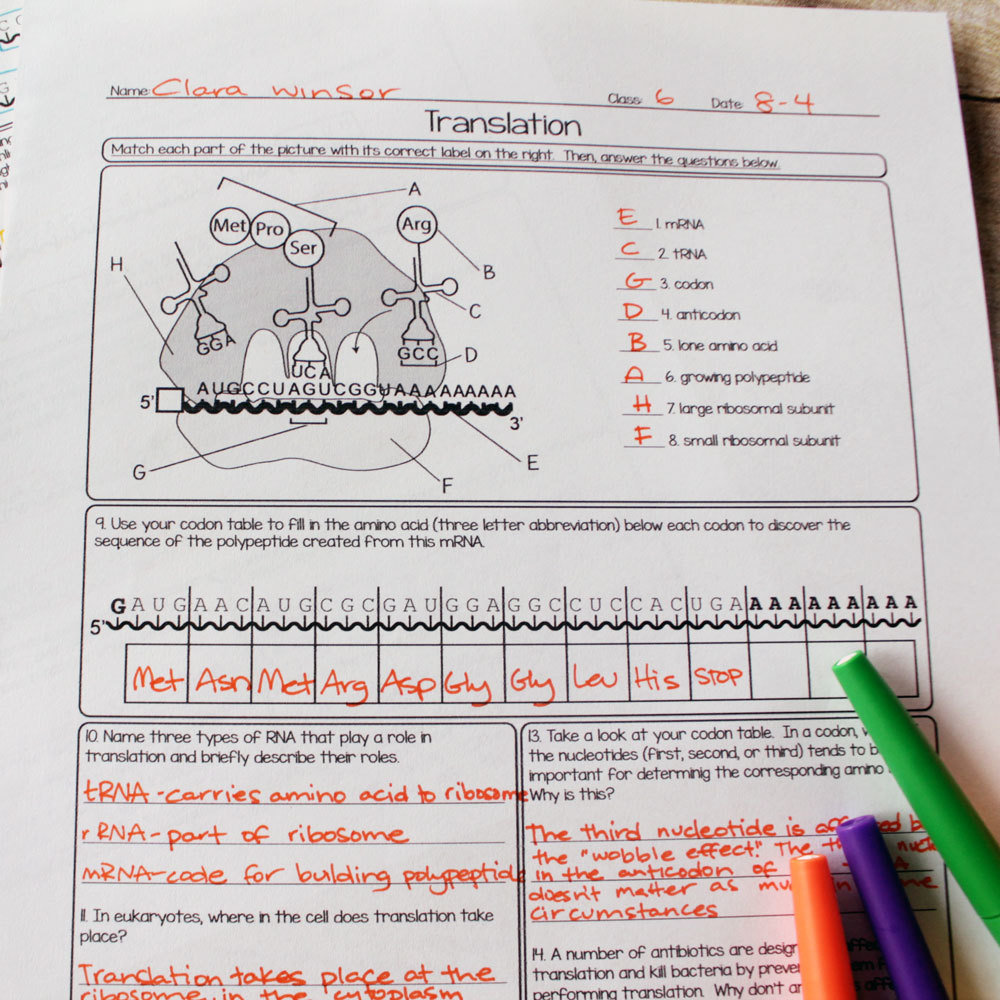 Name: Clara Winsor Class: 6 Date: 8-4
Translation
Match each part of the picture with its correct label on the right. Then, answer the questions below.
A
Met Pro Ser Arg
H
B
C
GGA
UCA
GCC
D
AUGCCUAGUCGGUAAAAAAAAA
5'
3'
G
E
F
E 1. mRNA
C 2. tRNA
G 3. codon
D 4. anticodon
B 5. lone amino acid
A 6. growing polypeptide
H 7. large ribosomal subunit
F 8. small ribosomal subunit
9. Use your codon table to fill in the amino acid (three letter abbreviation) below each codon to discover the
sequence of the polypeptide created from this mRNA.
G A U G A A C A U G C G C G A U G G A G G C C U C C A C U G A A A A A A A A A A
5'
Met Asn Met Arg Asp Gly Gly Leu His STOP
10. Name three types of RNA that play a role in
translation and briefly describe their roles.
tRNA - carries amino acid to ribosome
rRNA - part of ribosome
mRNA - code for building polypeptide
11. In eukaryotes, where in the cell does translation take
place?
Translation takes place at the
ribosome in the cytoplasm
13. Take a look at your codon table. In a codon,
the nucleotides (first, second, or third) tends to
important for determinig the corresponding amino
Why is this?
The third nucleotide is
the "wobble effect." The
in the anticodon of
doesn't matter as
circumstances
14. A number of antibiotics are
translation and kill bacteria by
performing translation. Why don't